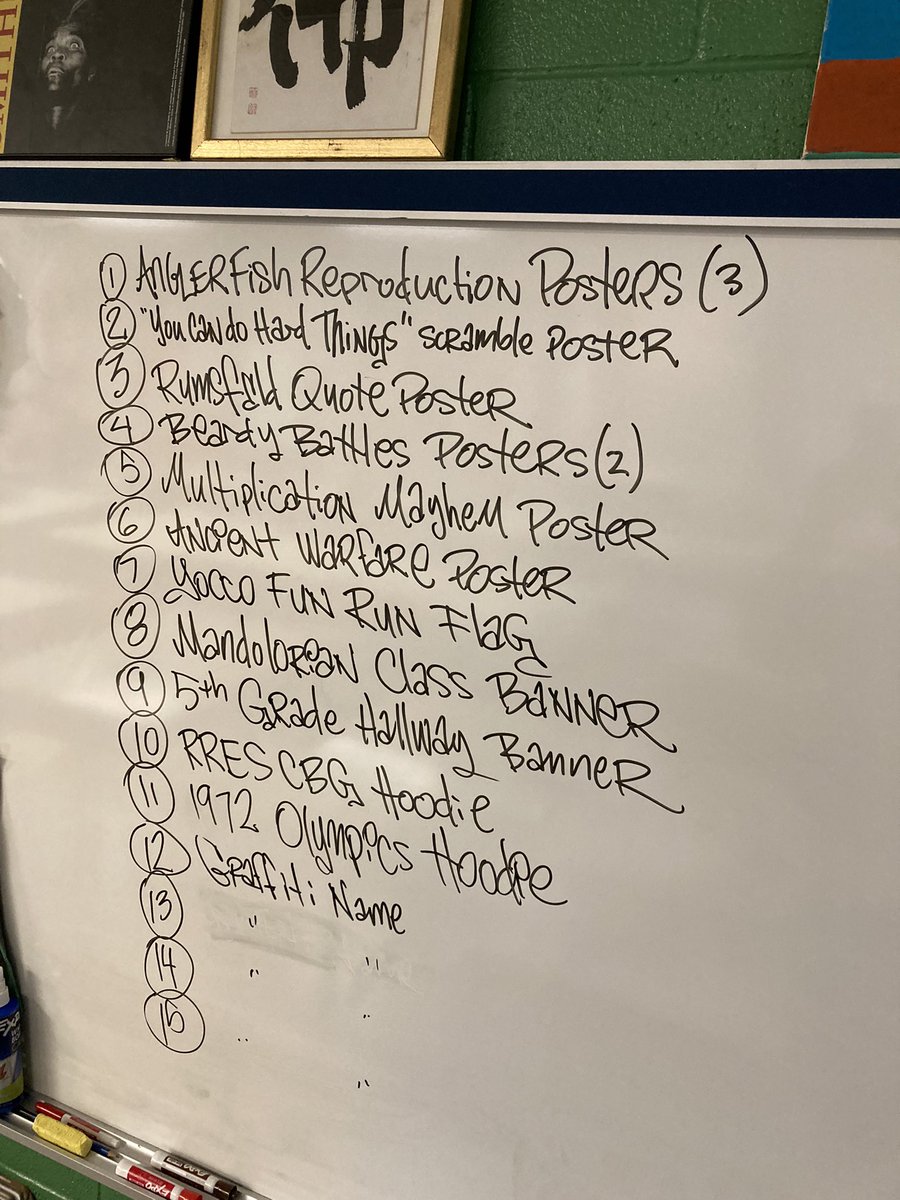 佛
① ANGLERFish Reproduction Posters (3)
② "You Can do Hard Things" Scramble Poster
③ Rumsfeld Quote Poster
④ Beardy Battles Posters (2)
⑤ Multiplication Mayhem Poster
⑥ Ancient Warfare Poster
⑦ Yocco Fun Run Flag
⑧ Mandolorian Class Banner
⑨ 5th Grade Hallway Banner
⑩ RRES CBG Hoodie
⑪ 1972 Olympics Hoodie
⑫ Graffiti Name
⑬ " "
⑭ " "
⑮ " "
EXPO
EXPO